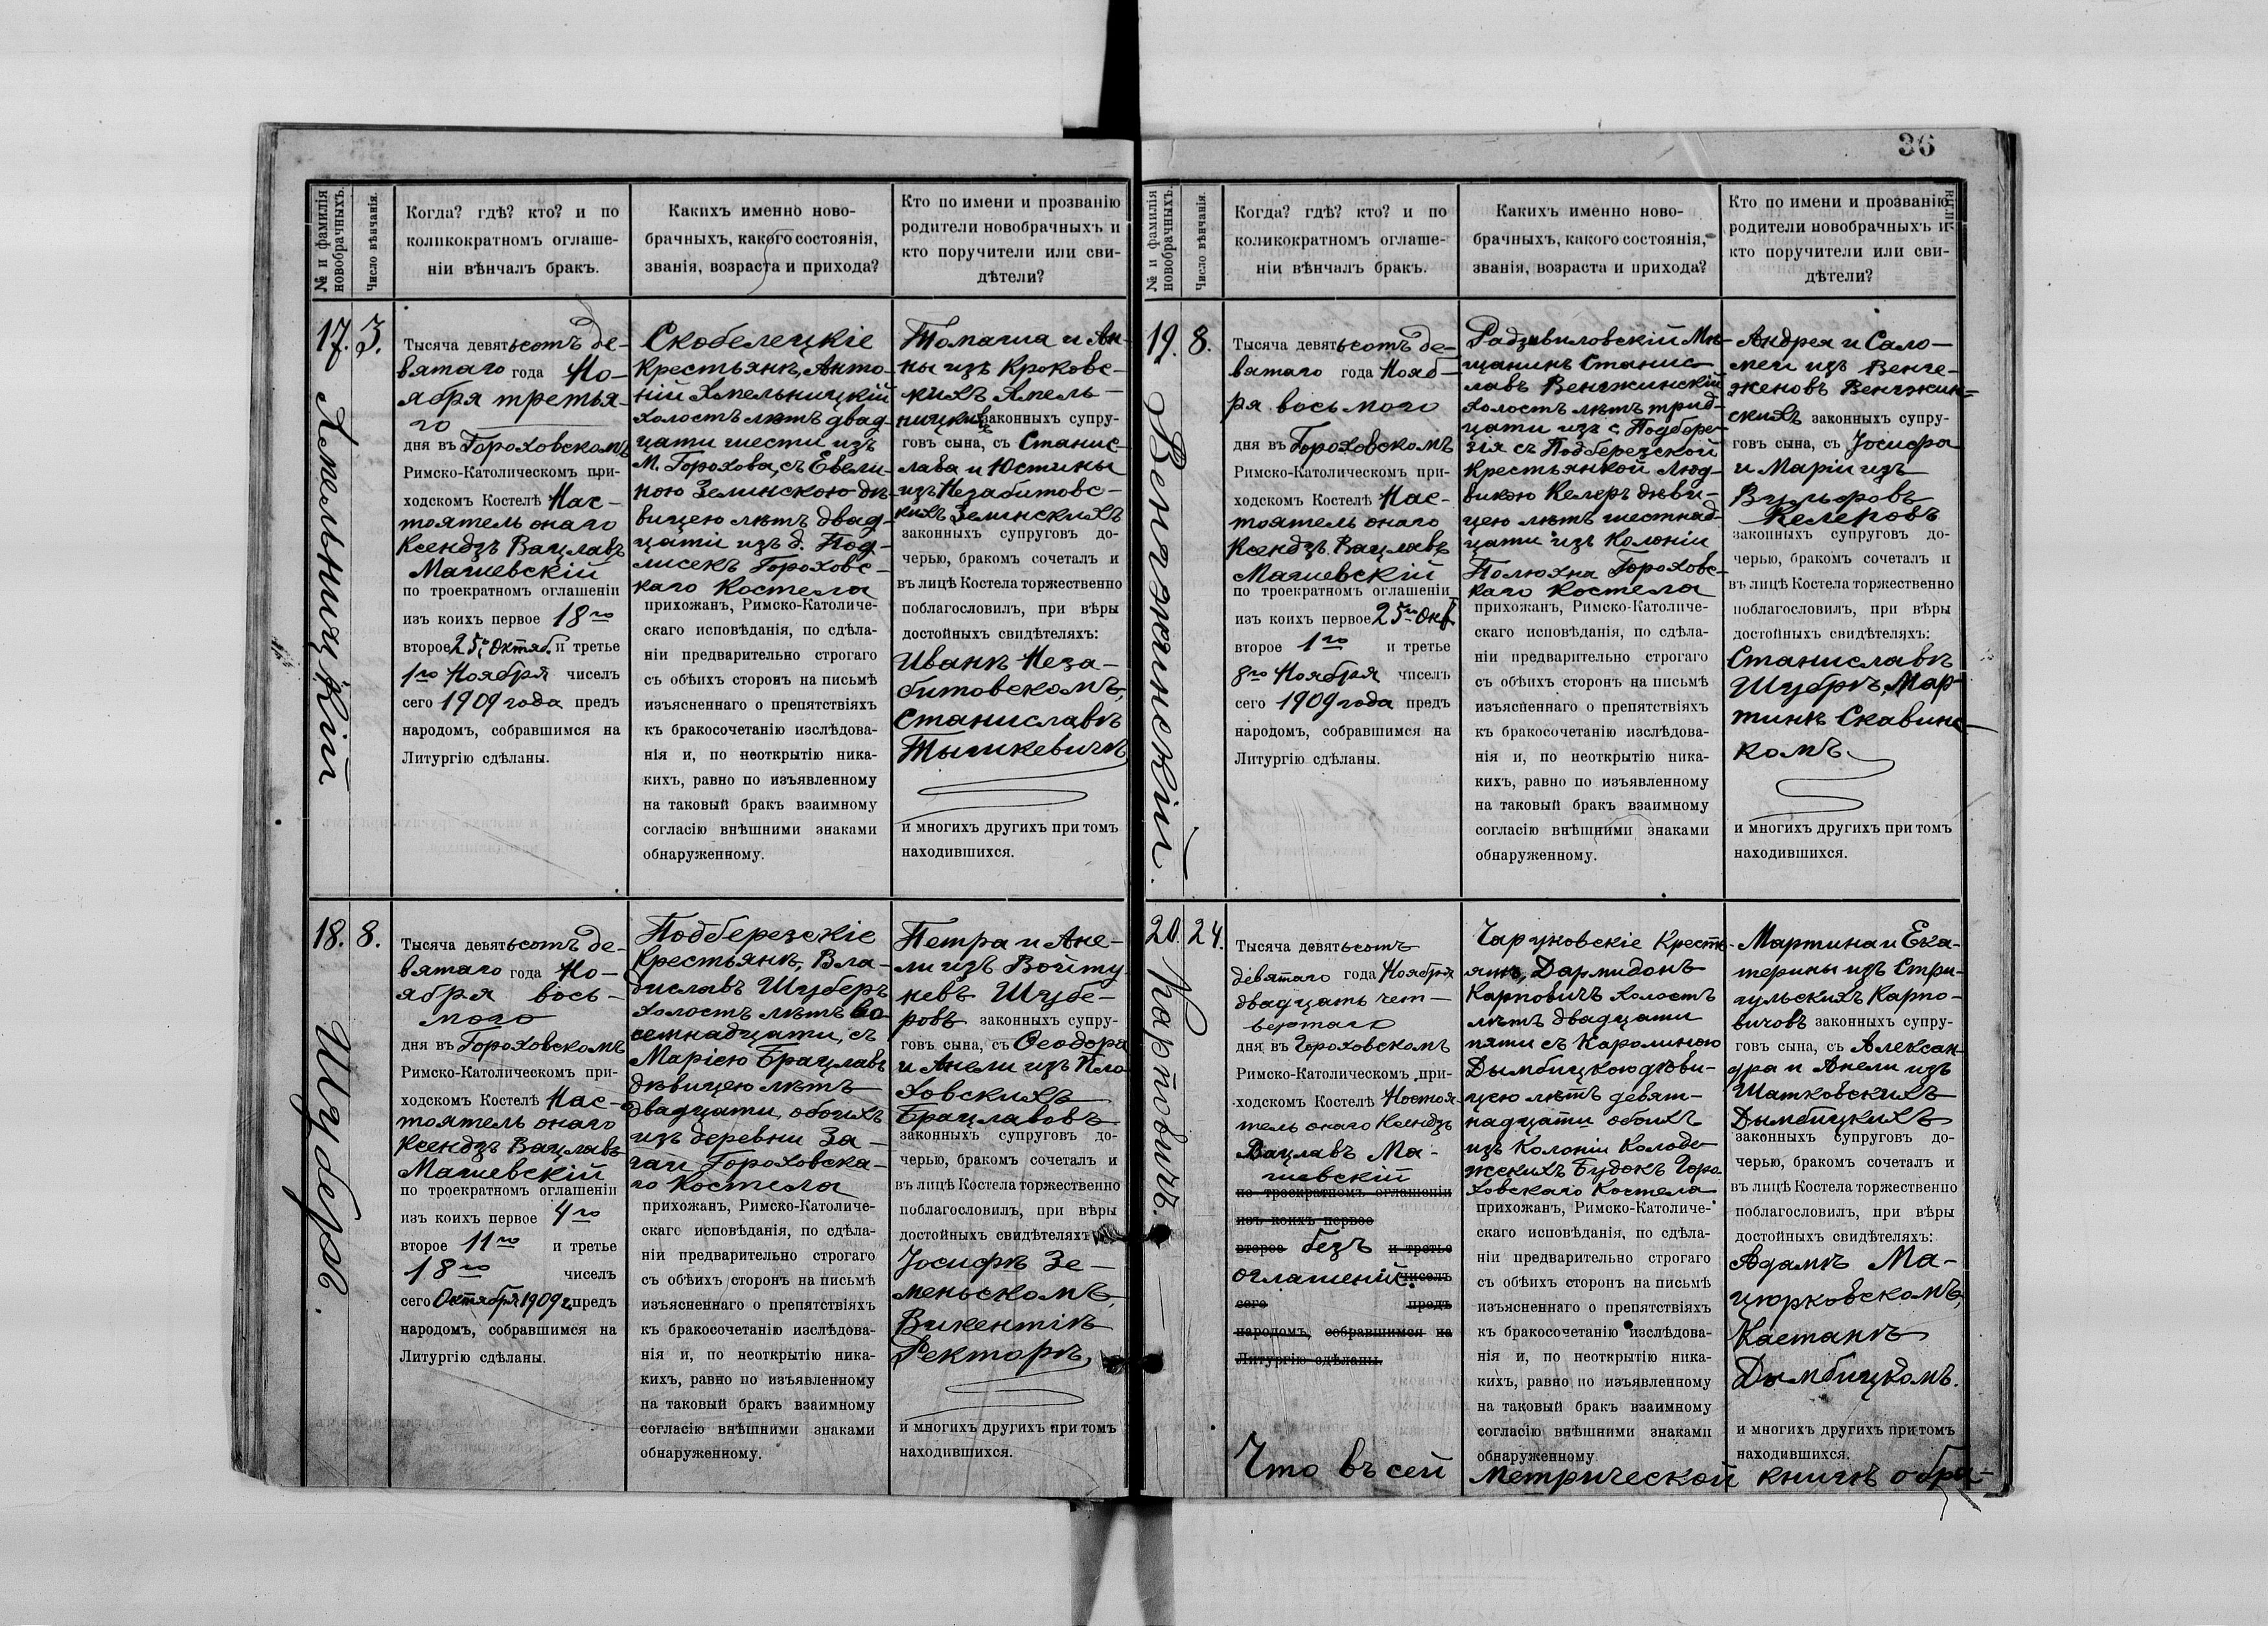 № и фамилія новобрачныхъ.
Число вѣнчанія.
Когда? гдѣ? кто? и по
коликократномъ оглаше-
ніи вѣнчалъ бракъ.
Какихъ именно ново-
брачныхъ, какого состоянія,
званія, возраста и прихода?
Кто по имени и прозванію
родители новобрачныхъ и
кто поручители или сви-
дѣтели?
17.
Хмельницкій
3.
Тысяча девятьсотъ де-
вятаго года Но-
ября третья-
го
дня въ Гороховскомъ
Римско-Католическомъ при-
ходскомъ Костелѣ Нас-
тоятель онаго
Ксендзъ Вацлавъ
Машевскій
по троекратномъ оглашеніи
изъ коихъ первое 18го
второе 25го Октяб. и третье
1го Ноября чиселъ
сего 1909 года предъ
народомъ, собравшимся на
Литургію сдѣланы.
Скобелецкіе
Крестьяне, Анто-
ній Хмельницкій
холостъ лѣтъ двад-
цати шести изъ
М. Горохова, съ Евели-
ною Зелинскою дѣ-
вицею лѣтъ двад-
цати изъ д. Под-
лисекъ Гороховс-
каго Костела
прихожанъ, Римско-Католиче-
скаго исповѣданія, по сдѣла-
ніи предварительно строгаго
съ обѣихъ сторонъ на письмѣ
изъясненнаго о препятствіяхъ
къ бракосочетанію изслѣдова-
нія и, по неоткрытію ника-
кихъ, равно по изъявленному
на таковый бракъ взаимному
согласію внѣшними знаками
обнаруженному.
Томаша и Ан-
ны изъ Кроковс-
кихъ Хмель-
ницкихъ законныхъ супру-
говъ сына, съ Станис-
лава и Юстины
изъ Незабитовс-
кихъ Зелинскихъ
законныхъ супруговъ до-
черью, бракомъ сочеталъ и
въ лицѣ Костела торжественно
поблагословилъ, при вѣры
достойныхъ свидѣтеляхъ:
Иванѣ Неза-
битовскомъ,
Станиславѣ
Тышкевичѣ
и многихъ другихъ при томъ
находившихся.
18.
Шуберъ.
8.
Тысяча девятьсотъ де-
вятаго года Но-
ября вось-
мого
дня въ Гороховскомъ
Римско-Католическомъ при-
ходскомъ Костелѣ Нас-
тоятель онаго
Ксендзъ Вацлавъ
Машевскій
по троекратномъ оглашеніи
изъ коихъ первое 4го
второе 11го и третье
18го чиселъ
сего Октября 1909 г. предъ
народомъ, собравшимся на
Литургію сдѣланы.
Подберезскіе
Крестьяне, Вла-
диславъ Шуберъ
холостъ лѣтъ во-
семнадцати, съ
Маріею Брацлавъ
дѣвицею лѣтъ
двадцати, обоихъ
изъ деревни За-
гаи Гороховска-
го Костела
прихожанъ, Римско-Католиче-
скаго исповѣданія, по сдѣла-
ніи предварительно строгаго
съ обѣихъ сторонъ на письмѣ
изъясненнаго о препятствіяхъ
къ бракосочетанію изслѣдова-
нія и, по неоткрытію ника-
кихъ, равно по изъявленному
на таковый бракъ взаимному
согласію внѣшними знаками
обнаруженному.
Петра и Ане-
ли изъ Войту-
невъ Шубе-
ровъ законныхъ супру-
говъ сына, съ Ѳеодора
и Анели изъ Кло-
ховскихъ
Брацлавовъ
законныхъ супруговъ до-
черью, бракомъ сочеталъ и
въ лицѣ Костела торжественно
поблагословилъ, при вѣры
достойныхъ свидѣтеляхъ:
Іосифѣ Зе-
меньскомъ,
Викентіѣ
Ректорѣ,
и многихъ другихъ при томъ
находившихся.
36
№ и фамилія новобрачныхъ.
Число вѣнчанія.
Когда? гдѣ? кто? и по
коликократномъ оглаше-
ніи вѣнчалъ бракъ.
Какихъ именно ново-
брачныхъ, какого состоянія,
званія, возраста и прихода?
Кто по имени и прозванію
родители новобрачныхъ и
кто поручители или сви-
дѣтели?
19.
Венгжинскій.
8.
Тысяча девятьсотъ де-
вятаго года Нояб-
ря восьмого
дня въ Гороховскомъ
Римско-Католическомъ при-
ходскомъ Костелѣ Нас-
тоятель онаго
Ксендзъ Вацлавъ
Машевскій
по троекратномъ оглашеніи
изъ коихъ первое 25го Окт.
второе 1го и третье
8го Ноября чиселъ
сего 1909 года предъ
народомъ, собравшимся на
Литургію сдѣланы.
Радзивиловскій Мѣ-
щанинъ Станис-
лавъ Венгжинскій
холостъ лѣтъ трид-
цати изъ с. Подбере-
зія съ Подберезской
Крестьянкой Люд-
викою Келеръ дѣви-
цею лѣтъ шестнад-
цати изъ Колоніи
Полюхна Гороховс-
каго Костела
прихожанъ, Римско-Католиче-
скаго исповѣданія, по сдѣла-
ніи предварительно строгаго
съ обѣихъ сторонъ на письмѣ
изъясненнаго о препятствіяхъ
къ бракосочетанію изслѣдова-
нія и, по неоткрытію ника-
кихъ, равно по изъявленному
на таковый бракъ взаимному
согласію внѣшними знаками
обнаруженному.
Андрея и Сало-
меи изъ Венге-
женовъ Венгжин-
скихъ законныхъ супру-
говъ сына, съ Іосифа
и Маріи изъ
Вульфовъ
Келеровъ
законныхъ супруговъ до-
черью, бракомъ сочеталъ и
въ лицѣ Костела торжественно
поблагословилъ, при вѣры
достойныхъ свидѣтеляхъ:
Станиславѣ
Шубрѣ, Мар-
тинѣ Скавинс-
комъ
и многихъ другихъ при томъ
находившихся.
20.
Карповичъ.
24.
Тысяча девятьсотъ
девятаго года Ноября
двадцать чет-
вертаго
дня въ Гороховскомъ
Римско-Католическомъ при-
ходскомъ Костелѣ Настоя-
тель онаго Ксендзъ
Вацлавъ Ма-
шевскій
по троекратномъ оглашеніи
изъ коихъ первое
второе безъ и третье
оглашеній. чиселъ
сего предъ
народомъ, собравшимся на
Литургію сдѣланы.
Чаруковскіе Кресть-
яне, Дармидонъ
Карповичъ холостъ
лѣтъ двадцати
пяти съ Каролиною
Дымбицкою дѣви-
цею лѣтъ девят-
надцати обоихъ
изъ Колоніи Колоде-
жскихъ Будокъ Горо-
ховскаго Костела
прихожанъ, Римско-Католиче-
скаго исповѣданія, по сдѣла-
ніи предварительно строгаго
съ обѣихъ сторонъ на письмѣ
изъясненнаго о препятствіяхъ
къ бракосочетанію изслѣдова-
нія и, по неоткрытію ника-
кихъ, равно по изъявленному
на таковый бракъ взаимному
согласію внѣшними знаками
обнаруженному.
Мартина и Ека-
терины изъ Стри-
гульскихъ Карпо-
вичовъ законныхъ супру-
говъ сына, съ Алексан-
дра и Анели изъ
Шатковскихъ
Дымбицкихъ
законныхъ супруговъ до-
черью, бракомъ сочеталъ и
въ лицѣ Костела торжественно
поблагословилъ, при вѣры
достойныхъ свидѣтеляхъ:
Адамѣ Ма-
цюрковскомъ,
Каетанѣ
Дымбицкомъ.
и многихъ другихъ при томъ
находившихся.
Что въ сей метрической книгѣ о бра-